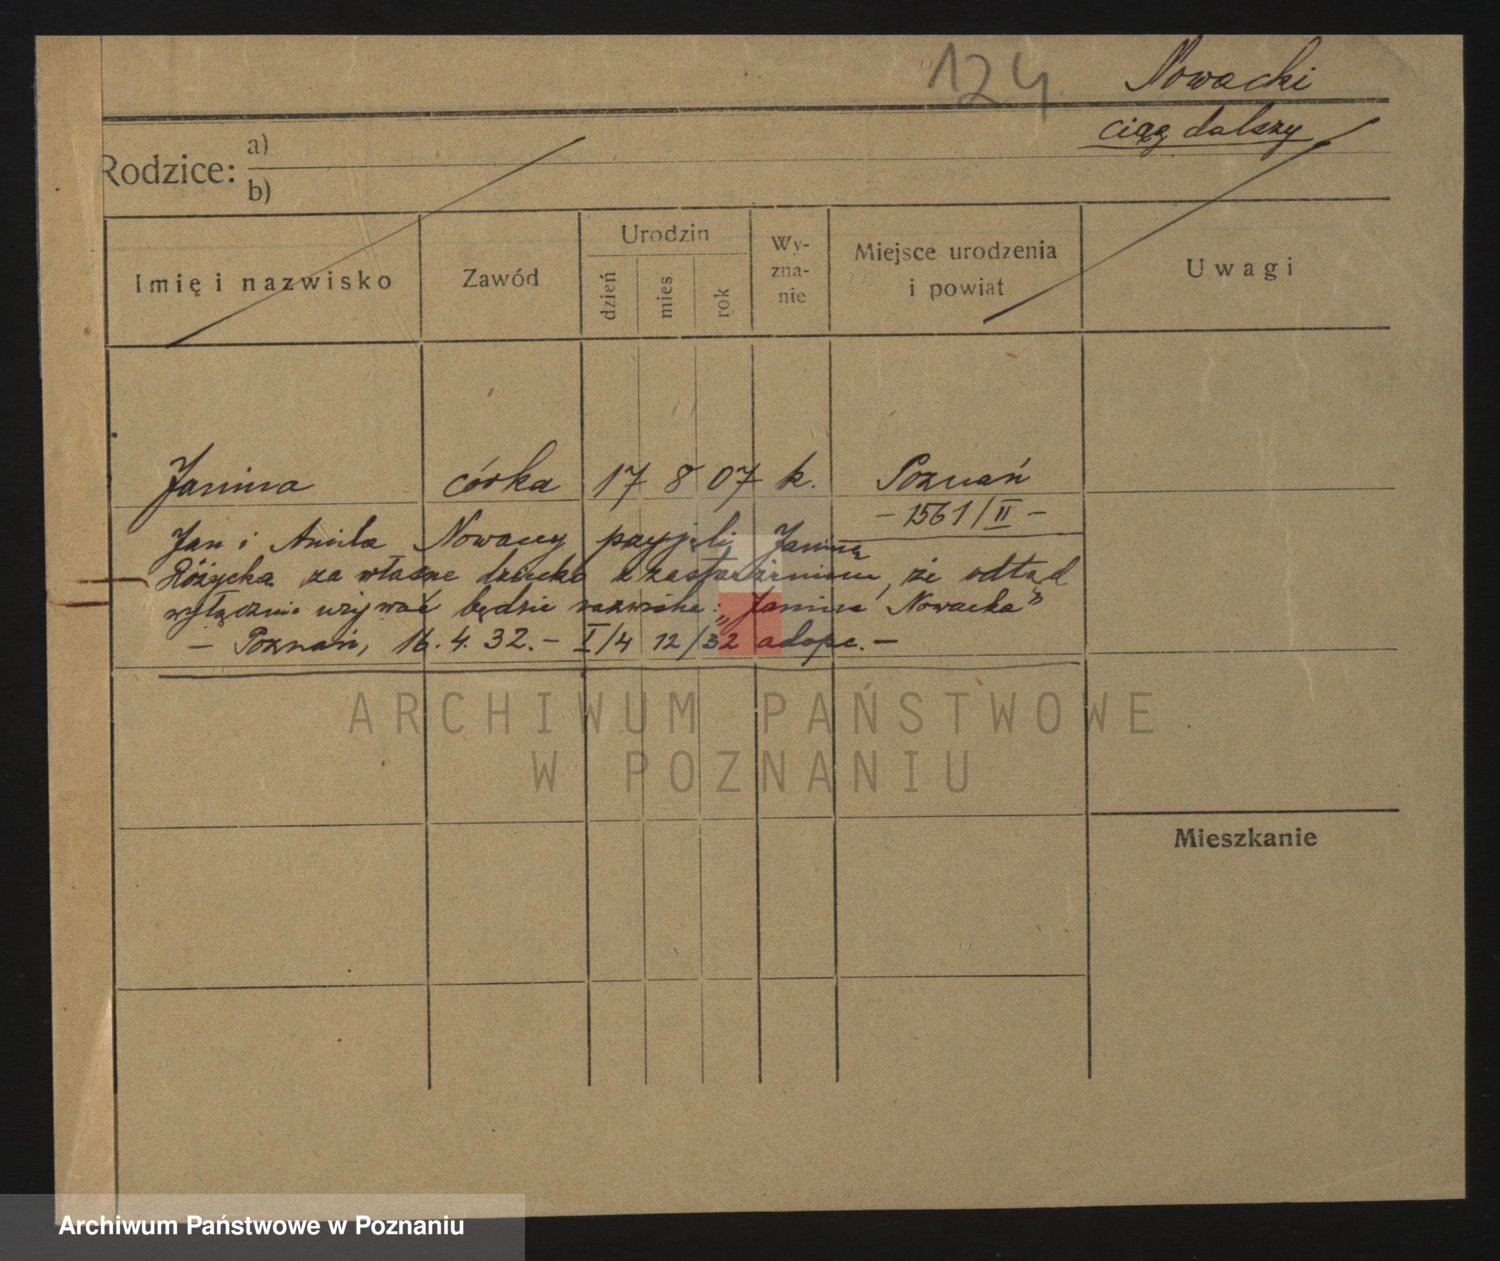 124 Nowacki
ciąg dalszy
Rodzice: a)
b)
Imię i nazwisko Zawód Urodzin dzień mies rok Wy-zna-nie Miejsce urodzenia i powiat Uwagi
Janina córka 17 8 07 k. Poznań
- 1561/II -
Jan i Aniela Nowaccy przyjęli Janinę
Różycką za własne dziecko z zastrzeżeniem, że odtąd
wyłącznie używać będzie nazwiska: „Janina Nowacka”
- Poznań, 16.4.32. - I/4 12/32 adopc. -
ARCHIWUM PAŃSTWOWE
W POZNANIU
Mieszkanie
Archiwum Państwowe w Poznaniu